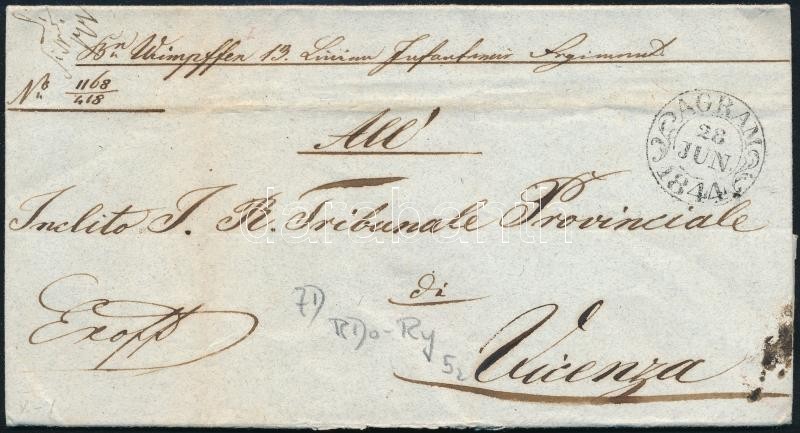 Bn Wimpffen 13. Linien Infanterie Regiment
No 1168/418
AGRAM
28
JUN.
1844
All'
Inclito I. R. Tribunale Provinciale
di
Vicenza
Exoff
71)
darabanth